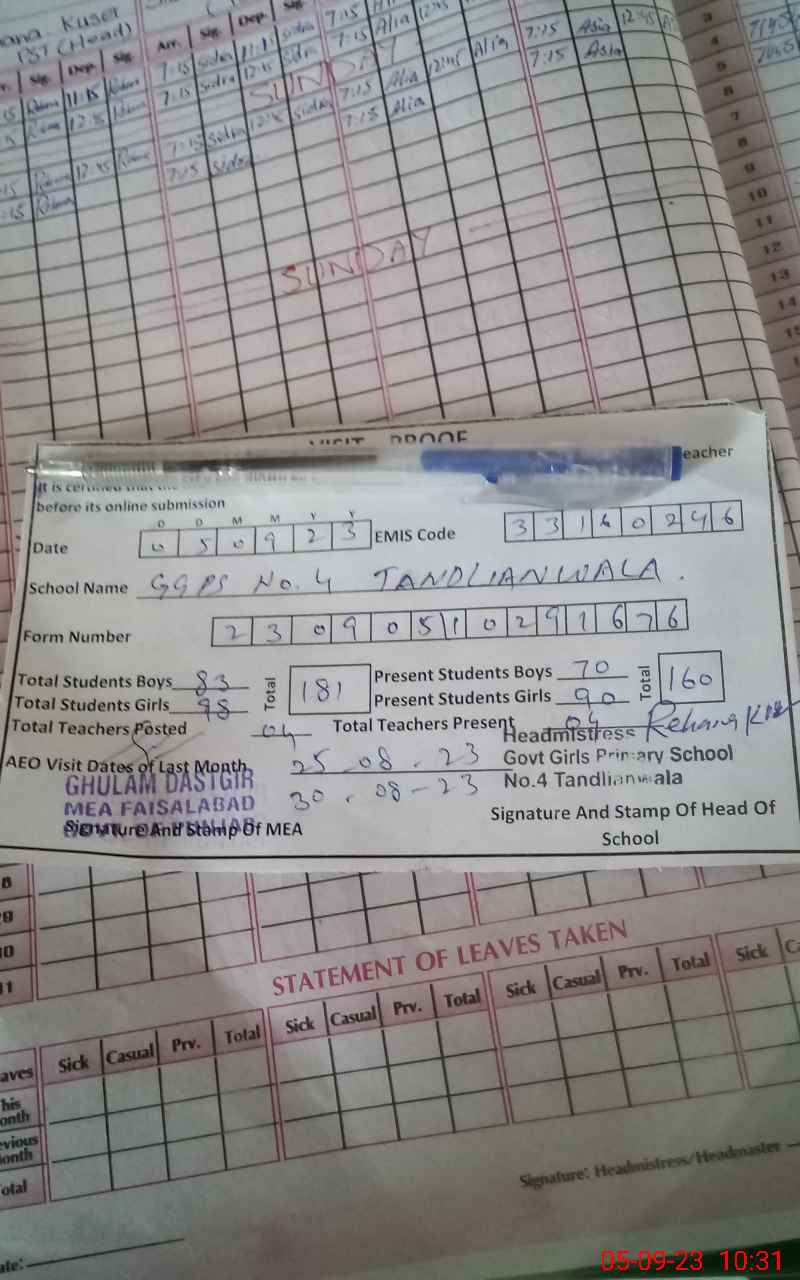 Kuser
(Head)
Arr. Sig. Dep. Sig.
7:15 Sidra 11:15 Sidra 7:15 Alia 12:45
7:15 Sidra 12:45 Sidra 7:15 Alia 12:45 Alia 7:15 Asia 12:45
SUNDAY
7:15 Sidra 12:45 Sidra 7:15 Alia 7:15 Asia
7:15 Sidra
SUNDAY
3
4
5
6
7
8
9
10
11
12
13
14
VISIT PROOF
eacher
It is certified that the
before its online submission
D D M M Y Y
Date 0 5 0 9 2 3 EMIS Code 3 3 1 6 0 2 4 6
School Name GGPS No. 4 TANDLIANWALA.
Form Number 2 3 0 9 0 5 1 0 2 9 1 6 7 6
Total Students Boys 83 Total 181 Present Students Boys 70 Total 160
Total Students Girls 98 Present Students Girls 90
Total Teachers Posted 04 Total Teachers Present 04
Headmistress
AEO Visit Dates of Last Month 25.08.23 Govt Girls Primary School
GHULAM DASTGIR 30.08-23 No.4 Tandlianwala
MEA FAISALABAD
Signature And Stamp Of MEA Signature And Stamp Of Head Of
School
8
9
10
11
STATEMENT OF LEAVES TAKEN
Sick Casual Prv. Total Sick Casual Prv. Total Sick Casual Prv. Total Sick
aves
his
onth
evious
onth
otal
Signature: Headmistress/Headmaster
ate:
05-09-23 10:31